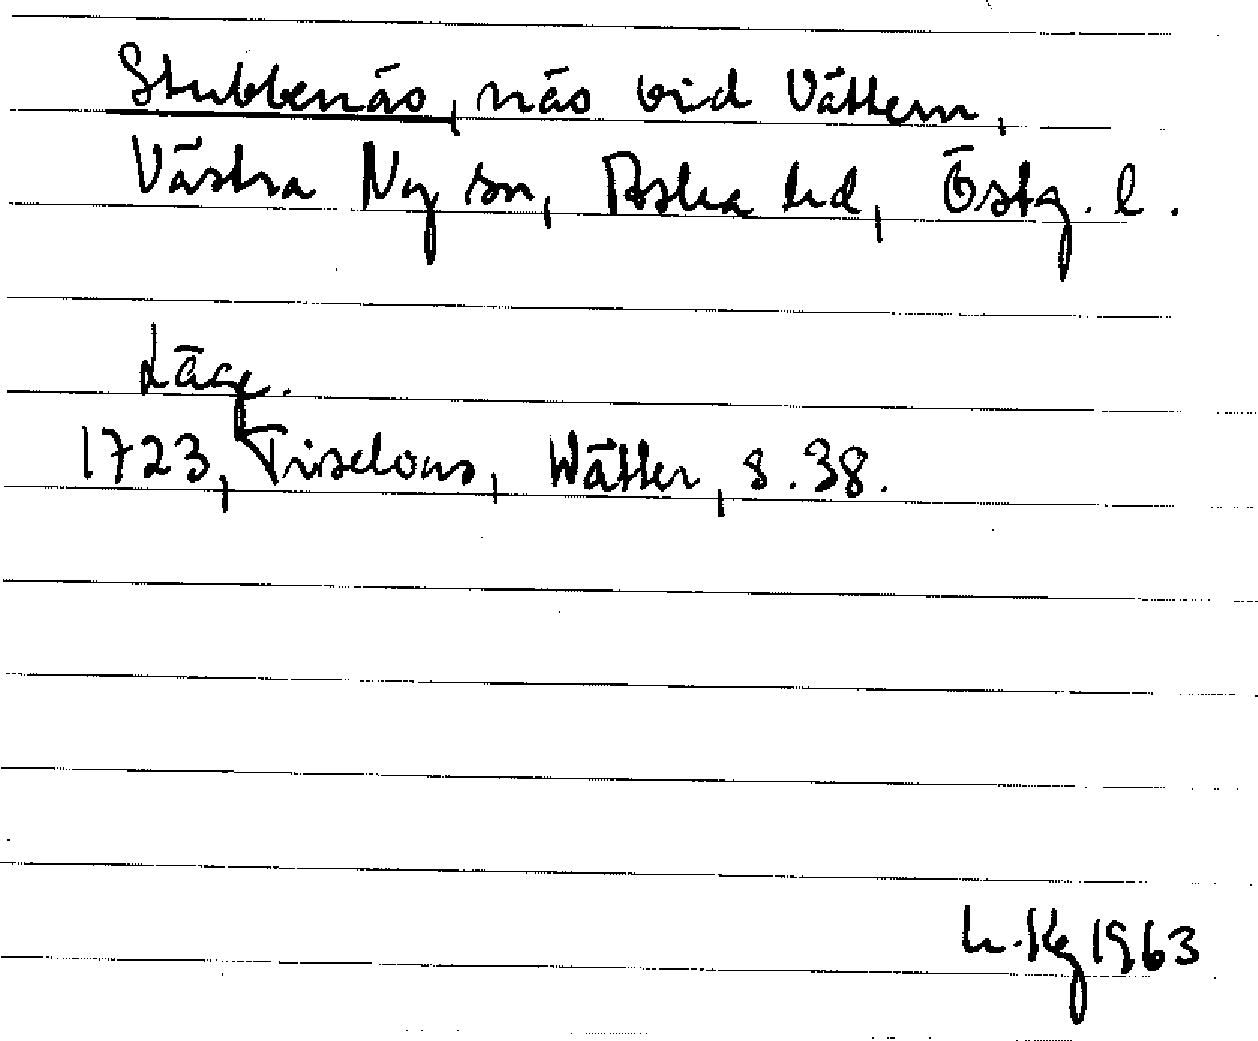 Stubbenäs, näs vid Vättern,
Västra Ny sn, Aska hd, Östg. l.
Läge.
1723, Tiselius, Wätter, s. 38.
1963